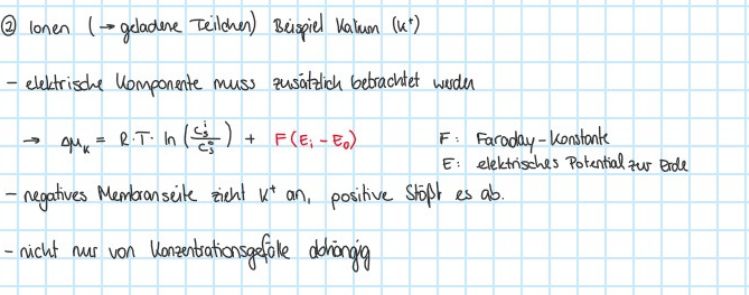 ② Ionen (→ geladene Teilchen) Beispiel Kalium (K⁺)
- elektrische Komponente muss zusätzlich betrachtet werden
→ Δμₖ = R·T· ln (cⱼⁱ/cⱼᵒ) + F(Eᵢ - E₀) F: Faraday-Konstante
E: elektrisches Potential zur Erde
- negatives Membranseite zieht K⁺ an, positive Stößt es ab.
- nicht nur von Konzentrationsgefälle abhängig